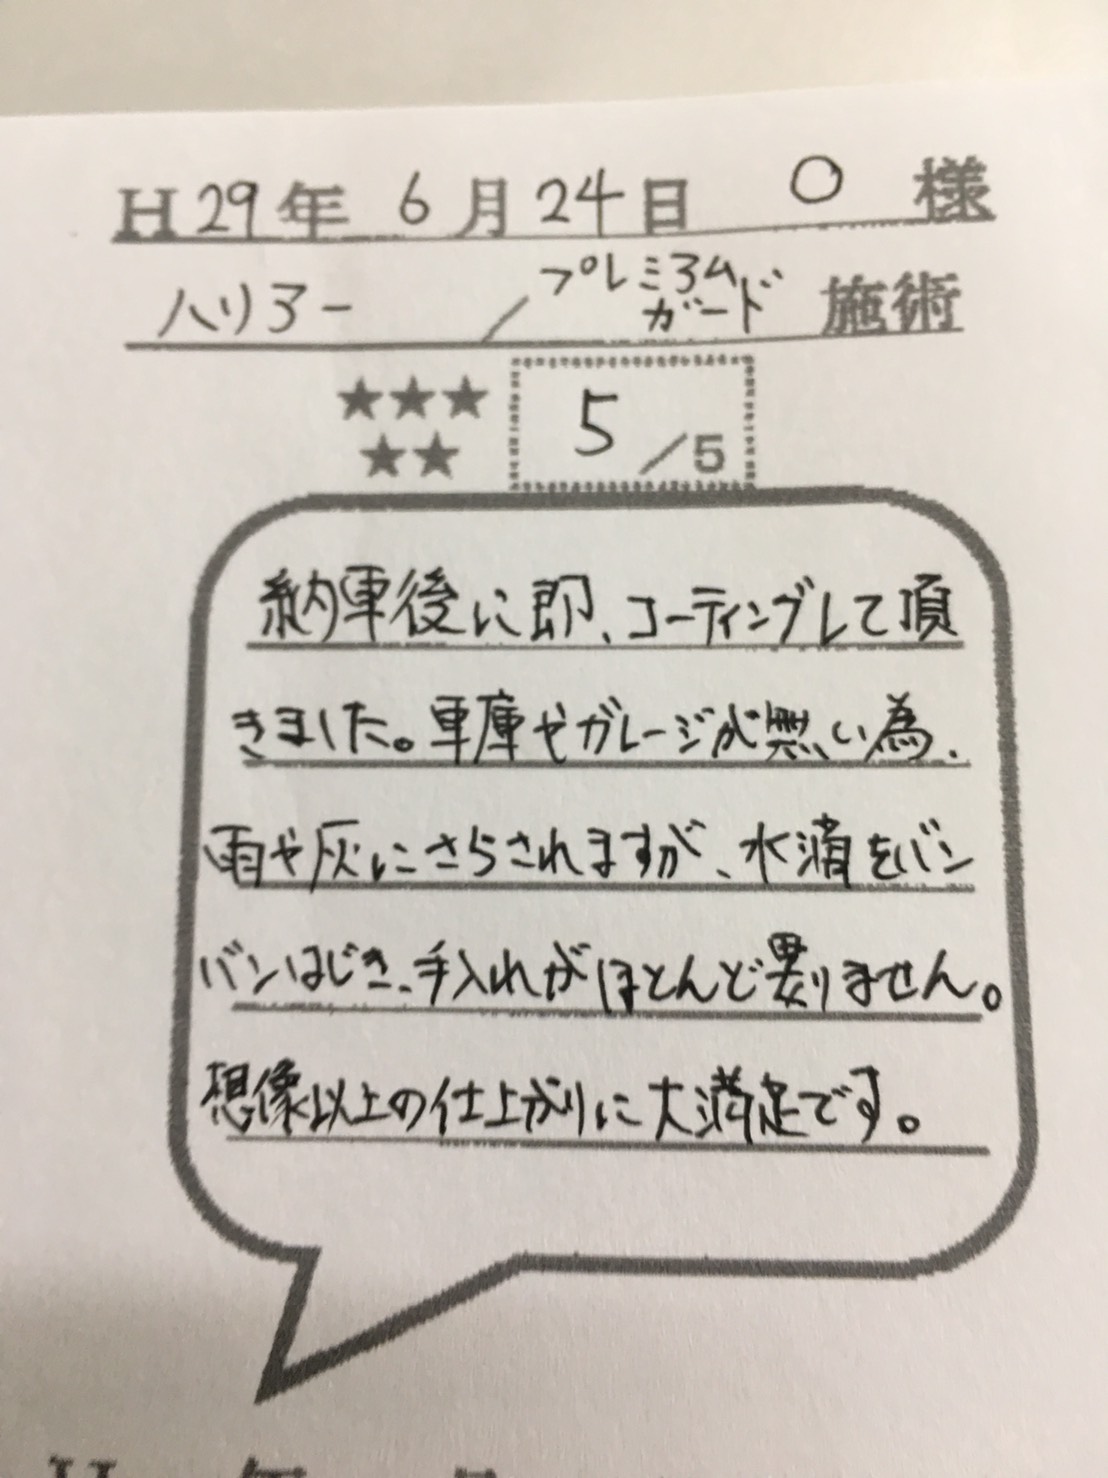 H29年 6月24日 O 様
ハリアー / プレミアム
ガード 施術
★★★
★★
5/5
納車後に即、コーティングして頂
きました。車庫やガレージが無い為、
雨や灰にさらされますが、水滴をバン
バンはじき、手入れがほとんど要りません。
想像以上の仕上がりに大満足です。
H 年